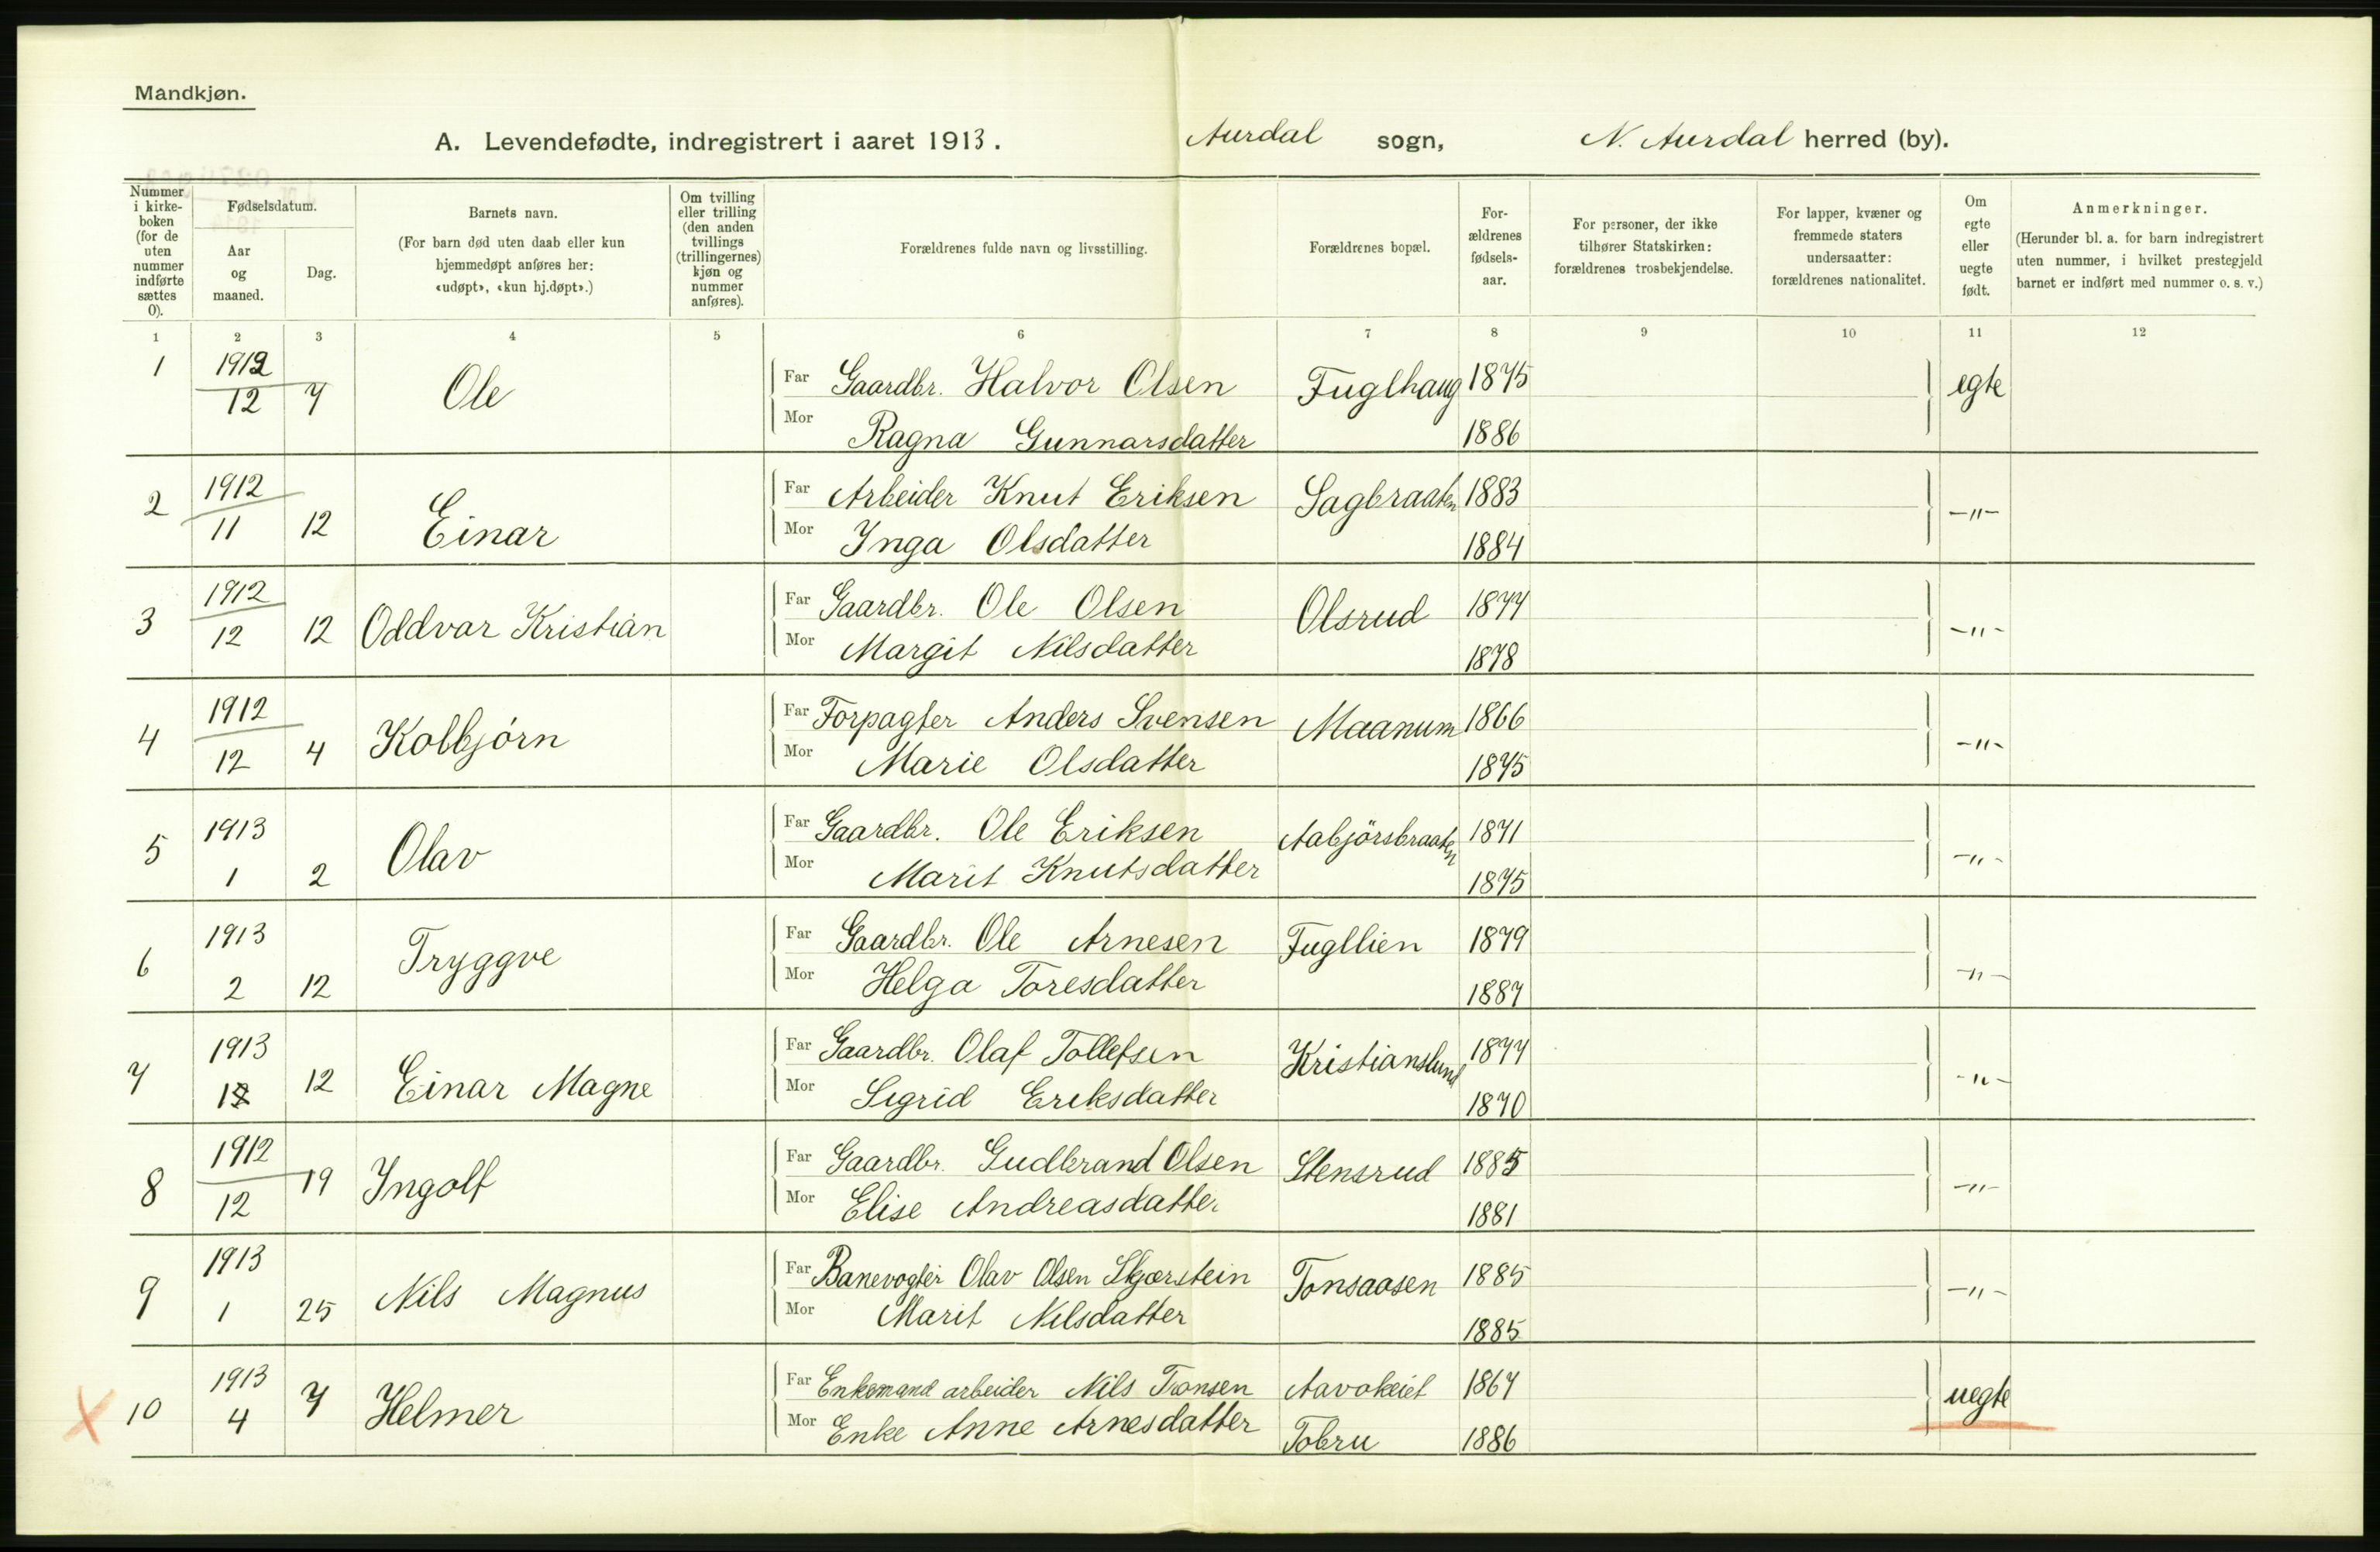 Mandkjøn.
A. Levendefødte, indregistrert i aaret 1913. Aurdal sogn, N. Aurdal herred (by).
Nummer i kirke-boken (for de uten nummer indførte sættes 0).
Fødselsdatum.
Aar og maaned.
Dag.
Barnets navn.
(For barn død uten daab eller kun hjemmedøpt anføres her: «udøpt», «kun hj.døpt».)
Om tvilling eller trilling (den anden tvillings (trillingernes) kjøn og nummer anføres).
Forældrenes fulde navn og livsstilling.
Forældrenes bopæl.
For-ældrenes fødsels-aar.
For personer, der ikke tilhører Statskirken: forældrenes trosbekjendelse.
For lapper, kvæner og fremmede staters undersaatter: forældrenes nationalitet.
Om egte eller uegte født.
Anmerkninger.
(Herunder bl. a. for barn indregistrert uten nummer, i hvilket prestegjeld barnet er indført med nummer o. s. v.)
1 2 3 4 5 6 7 8 9 10 11 12
1 1912 12 7 Ole Far Gaardbr. Halvor Olsen Fuglhaug 1875 egte
Mor Ragna Gunnarsdatter 1886
2 1912 11 12 Einar Far Arbeider Knut Eriksen Sagbraaten 1883 -"-
Mor Inga Olsdatter 1884
3 1912 12 12 Oddvar Kristian Far Gaardbr. Ole Olsen Olsrud 1877 -"-
Mor Margit Nilsdatter 1878
4 1912 12 4 Kolbjørn Far Forpagter Anders Svensen Maanum 1866 -"-
Mor Marie Olsdatter 1875
5 1913 1 2 Olav Far Gaardbr. Ole Eriksen Aabjörsbraaten 1871 -"-
Mor Marit Knutsdatter 1875
6 1913 2 12 Tryggve Far Gaardbr. Ole Arnesen Fugllien 1879 -"-
Mor Helga Toresdatter 1887
7 1913 12 Einar Magne Far Gaardbr. Olaf Tollefsen Kristianslund 1877 -"-
Mor Sigrid Eriksdatter 1870
8 1912 12 19 Ingolf Far Gaardbr. Gudbrand Olsen Stensrud 1885 -"-
Mor Elise Andreasdatter 1881
9 1913 1 25 Nils Magnus Far Banevogter Olav Olsen Skjærstein Tonsaasen 1885 -"-
Mor Marit Nilsdatter 1885
10 1913 4 7 Helmer Far Enkemand arbeider Nils Tronsen 1867 uegte
Mor Enke Anne Arnesdatter Tobru 1886